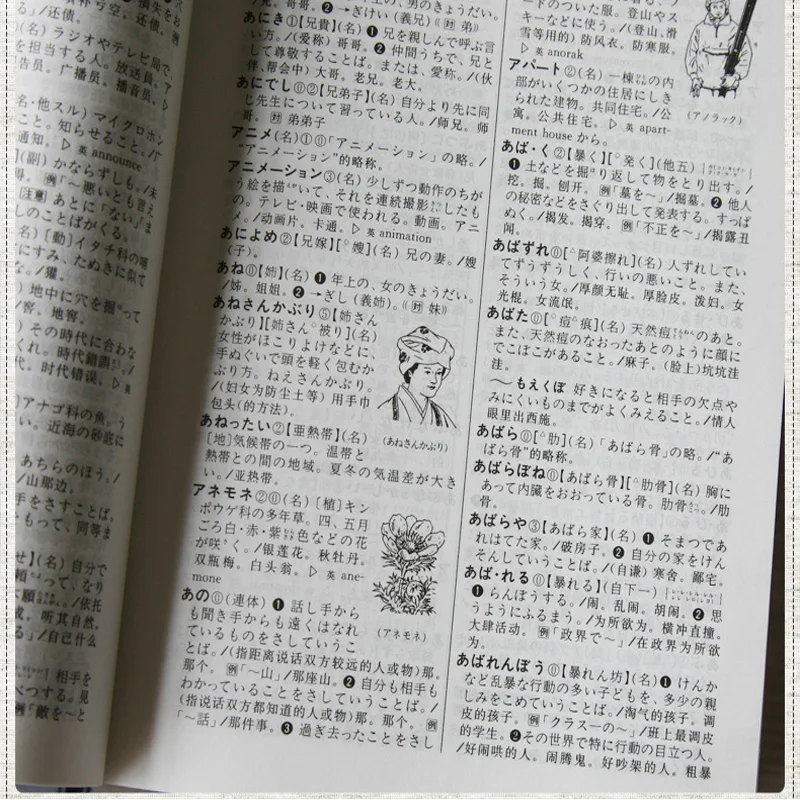 る」/还债。
ラジオやテレビ局で、
を担当する人。放送員。ア
告员。广播员。播音员。
名・他スル) マイクロホン
こと。知らせること。/广
通知。▷ 英 announce
(副) かならずしも。/未
得。例「～悪いとも言え
注意 あとに「ない」ま
しのことばがくる。
名) [動] イタチ科の哺
にすみ、たぬきに似て
な。/獾。
地中に穴を掘って
/窖。地窖。
その時代に合わな
くれ。時代錯誤。/
代。时代错误。▷ 英
) アナゴ科の魚。う
い。近海の砂底に
あちらのほう。/
/山那边。
手をさすことば。
もって、同等ま
自分で
って、なり
願。/依托
成。听其自然。
る」/自己什么
相手を
べつする。見
例「敵を～と
兄哥。哥哥。❷→ぎけい (義兄) (対 弟)
あにき①【兄貴】(名) ❶ 兄を親しんで呼ぶ言
い方。/(爱称) 哥哥。❷ 仲間うちで、兄と
して尊敬することば。または、愛称。/(伙
伴、帮会中) 大哥。老兄。老大。
あにでし⓪②【兄弟子】(名) 自分より先に同
じ先生について習っている人。/师兄。师
哥。対 弟弟子
アニメ(名)①⓪「アニメーション」の略。/
“アニメーション”的略称。
アニメーション③(名) 少しずつ動作のちが
う絵を描いて、それを連続撮影したも
の。テレビ・映画で使われる。動画。アニ
メ。/动画片。卡通。▷ 英 animation
あによめ②【兄嫁】[°嫂](名) 兄の妻。/嫂
(子)。
あね⓪【姉】(名) ❶ 年上の、女のきょうだい。
/姊。姐姐。❷→ぎし (義姉)。(対 妹)
あねさんかぶり⑤【姉さん
かぶり】[姉さん°被り](名)
女性がほこりよけなどに、
手ぬぐいで頭を軽く包むか
ぶり方。ねえさんかぶり。
/(妇女为防尘土等) 用手巾
包头(的方法)。
(あねさんかぶり)
あねったい②【亜熱帯】(名)
〔地〕気候帯の一つ。温帯と
熱帯との間の地域。夏冬の気温差が大き
い。/亚热带。
アネモネ②⓪(名) 〔植〕キン
ポウゲ科の多年草。四、五月
ごろ白・赤・紫色などの花
が咲く。/银莲花。秋牡丹。
双瓶梅。白头翁。▷ 英 ane-
mone
(アネモネ)
あの⓪(連体) ❶ 話し手から
も聞き手からも遠くはなれ
ているものをさしていうこ
とば。/(指距离说话双方较远的人或物)那。
那个。例「～山」/那座山。❷ 自分も相手も
わかっていることをさしていうことば。/
(指说话双方都知道的人或物) 那。那个。例
「～話」/那件事。❸ 過ぎ去ったことをさし
ードのついた服。登山やス
キーなどに使う。/(登山、滑
雪等用的) 防风衣。防寒服。
▷ 英 anorak
(アノラック)
アパート②(名) 一棟の内
部がいくつかの住居にしき
られた建物。共同住宅。/公
寓。公共住宅。▷ 英 apart-
ment house から。
あば・く②【暴く】[°発く](他五)
❶ 土などを掘り返して物をとり出す。/
挖。掘。刨开。例「墓を～」/掘墓。❷ 他人
の秘密などをさぐり出して発表する。すっぱ
ぬく。/揭发。揭穿。例「不正を～」/揭露丑
闻。
あばずれ⓪[△阿婆擦れ](名) 人ずれしてい
てずうずうしく、行いの悪いこと。また、
そういう女。/厚颜无耻。厚脸皮。泼妇。女
光棍。女流氓。
あばた⓪[°痘△痕](名) 天然痘のあと。
また、天然痘のなおったあとのように顔に
でこぼこがあること。/麻子。(脸上)坑坑洼
洼。
～もえくぼ 好きになると相手の欠点や
みにくいものまでがよくみえること。/情人
眼里出西施。
あばら⓪[△肋](名)「あばら骨」の略。/“あ
ばら骨”的略称。
あばらぼね⓪【あばら骨】[△肋骨](名) 胸に
あって内臓をおおっている骨。肋骨。/肋
骨。
あばらや③【あばら家】(名) ❶ そまつであ
れはてた家。/破房子。❷ 自分の家をけん
そんしていうことば。/(自谦) 寒舍。鄙宅。
あば・れる⓪【暴れる】(自下一)
❶ らんぼうする。/闹。乱闹。胡闹。❷ 思
うようにふるまう。/为所欲为。横冲直撞。
大肆活动。例「政界で～」/在政界为所欲
为。
あばれんぼう⓪【暴れん坊】(名) ❶ けんか
など乱暴な行動の多い子どもを、多少の親
しみをこめていうことば。/淘气的孩子。调
皮的孩子。例「クラス一の～」/班上最调皮
的学生。❷その世界で特に行動の目立つ人。
/好闹哄的人。闹腾鬼。好吵架的人。粗暴